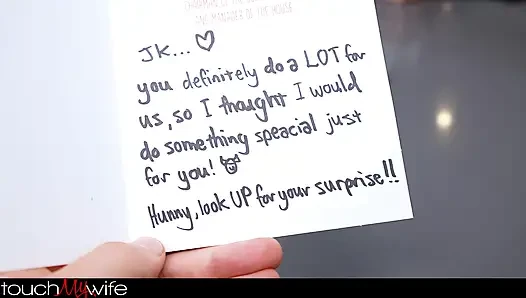 CHAIRMAN OF THE
AND MANAGER OF THE HOUSE
JK...♡
you definitely do a LOT for
us, so I thought I would
do something speacial just
for you!
Hunny, look UP for your surprise!!
touchMywife